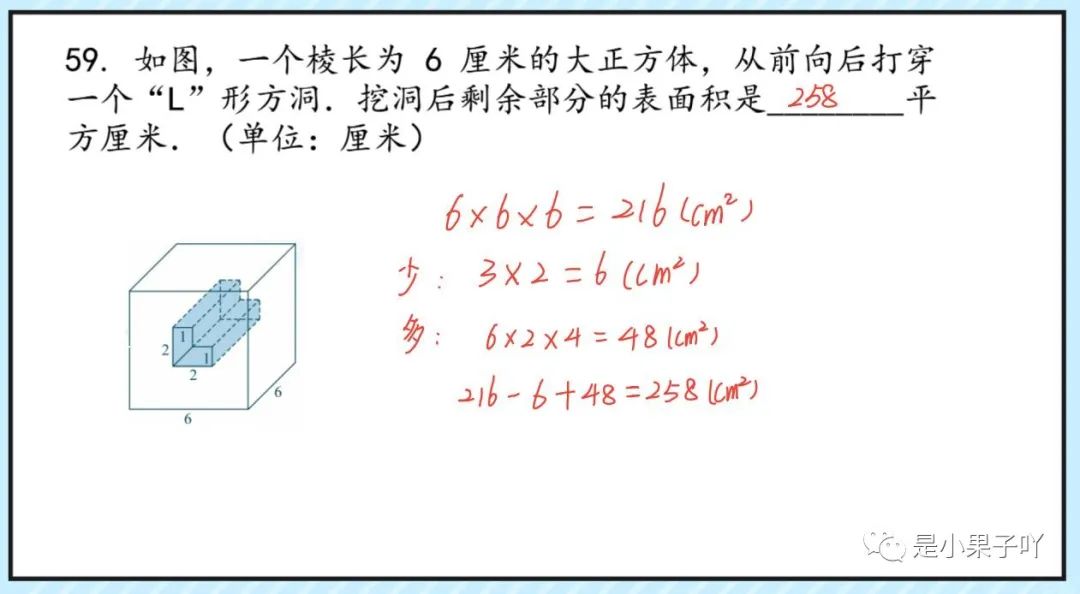 59. 如图，一个棱长为 6 厘米的大正方体，从前向后打穿
一个“L”形方洞．挖洞后剩余部分的表面积是 258 平
方厘米．（单位：厘米）
6×6×6=216(cm²)
少：3×2=6(cm²)
多：6×2×4=48(cm²)
216-6+48=258(cm²)
1
2
1
2
6
6
是小果子吖